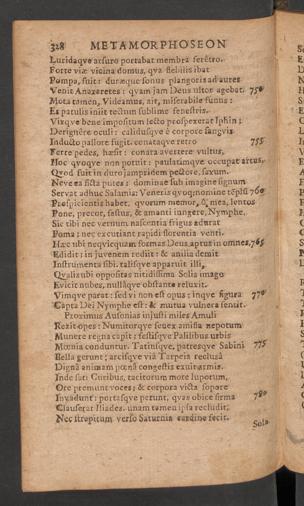 328 METAMORPHOSEON
Luridaque arsuro portabat membra ferêtro.
Forte viæ vicina domus, qua flebilis ibat
Pompa, fuit: duræque sonus plangoris ad aures
Venit Anaxaretes: quam jam Deus ultor agebat. 750
Mota tamen, Videamus, ait, miserabile funus:
Et patulis iniit tectum sublime fenestris.
Vixque bene impositum lecto prospexerat Iphin;
Derigûere oculi: calidusque è corpore sangvis
Inducto pallore fugit. conataque retro 755
Ferre pedes, hæsit: conata avertere vultus,
Hoc quoque non potuit: paulatimque occupat artus,
Quod fuit in duro jampridem pectore, saxum.
Neve ea ficta putes: dominæ sub imagine signum
Servat adhuc Salamis: Veneris quoque nomine tēplū 760
Prospicientis habet. quorum memor, ô, mea, lentos
Pone, precor, fastus, & amanti jungere, Nymphe.
Sic tibi nec vernum nascentia frigus adurat
Poma; nec excutiant rapidi florentia venti.
Hæc ubi nequicquam formas Deus aptus in omnes, 765
Edidit: in juvenem rediit: & anilia demit
Instrumenta sibi. talisque apparuit illi,
Qualis ubi oppositas nitidissima Solis imago
Evicit nubes, nullâque obstante reluxit.
Vimque parat: sed vi non est opus: inque figura 770
Capta Dei Nymphe est: & mutua vulnera sentit.
Proximus Ausonias injusti miles Amuli
Rexit opes: Numitorque senex amissa nepotum
Munere regna capit: festisque Palilibus urbis
Mœnia conduntur. Tatiusque, patresque Sabini 775
Bella gerunt; arcisque viâ Tarpeia reclusâ
Dignâ animam pœnâ congestis exuit armis.
Inde sati Curibus, tacitorum more luporum,
Ore premunt voces; & corpora victa sopore
Invadunt: portasque petunt, quas obice firmo 780
Clauserat Iliades. unam tamen ipsa recludit;
Nec strepitum verso Saturnia cardine fecit.
Sola